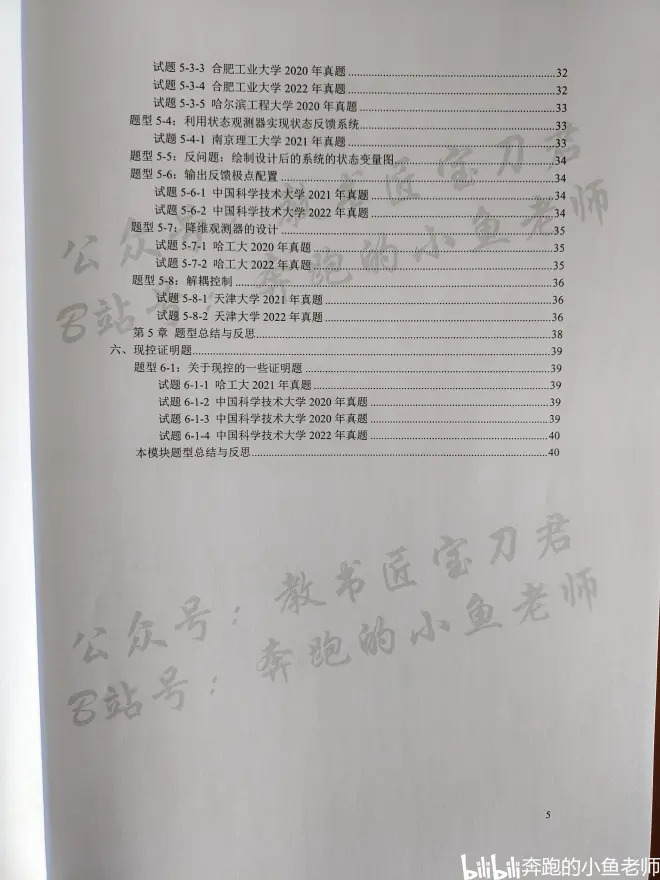 试题 5-3-3 合肥工业大学 2020 年真题........32
试题 5-3-4 合肥工业大学 2022 年真题........32
试题 5-3-5 哈尔滨工程大学 2020 年真题........33
题型 5-4：利用状态观测器实现状态反馈系统........33
试题 5-4-1 南京理工大学 2021 年真题........33
题型 5-5：反问题：绘制设计后的系统的状态变量图........34
题型 5-6：输出反馈极点配置........34
试题 5-6-1 中国科学技术大学 2021 年真题........34
试题 5-6-2 中国科学技术大学 2022 年真题........34
题型 5-7：降维观测器的设计........35
试题 5-7-1 哈工大 2020 年真题........35
试题 5-7-2 哈工大 2022 年真题........35
题型 5-8：解耦控制........36
试题 5-8-1 天津大学 2021 年真题........36
试题 5-8-2 天津大学 2022 年真题........36
第 5 章 题型总结与反思........38
六、现控证明题........39
题型 6-1：关于现控的一些证明题........39
试题 6-1-1 哈工大 2021 年真题........39
试题 6-1-2 中国科学技术大学 2020 年真题........39
试题 6-1-3 中国科学技术大学 2020 年真题........39
试题 6-1-4 中国科学技术大学 2022 年真题........40
本模块题型总结与反思........40
公众号：教书匠宝刀君
B站号：奔跑的小鱼老师
公众号：教书匠宝刀君
B站号：奔跑的小鱼老师
5
bilibili 奔跑的小鱼老师